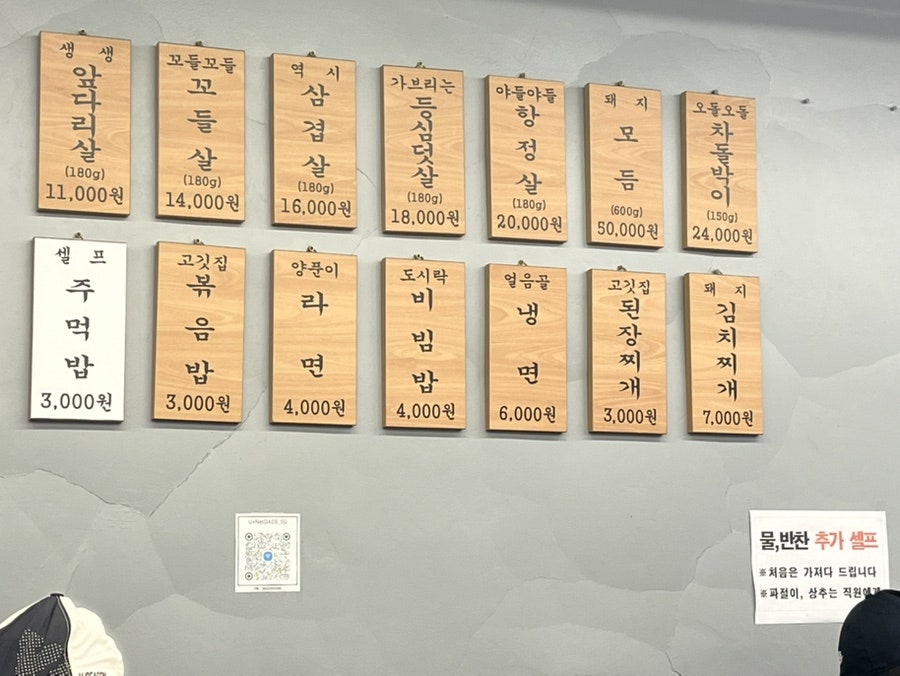 생 생
앞다리살
(180g)
11,000원
꼬들꼬들
꼬들살
(180g)
14,000원
역 시
삼겹살
(180g)
16,000원
가브리는
등심덧살
(180g)
18,000원
야들야들
항정살
(180g)
20,000원
돼 지
모듬
(600g)
50,000원
오돌오돌
차돌박이
(150g)
24,000원
셀 프
주먹밥
3,000원
고깃집
볶음밥
3,000원
양푼이
라면
4,000원
도시락
비빔밥
4,000원
얼음골
냉면
6,000원
고깃집
된장찌개
3,000원
돼 지
김치찌개
7,000원
물,반찬 추가 셀프
※처음은 가져다 드립니다
※파절이, 상추는 직원에게